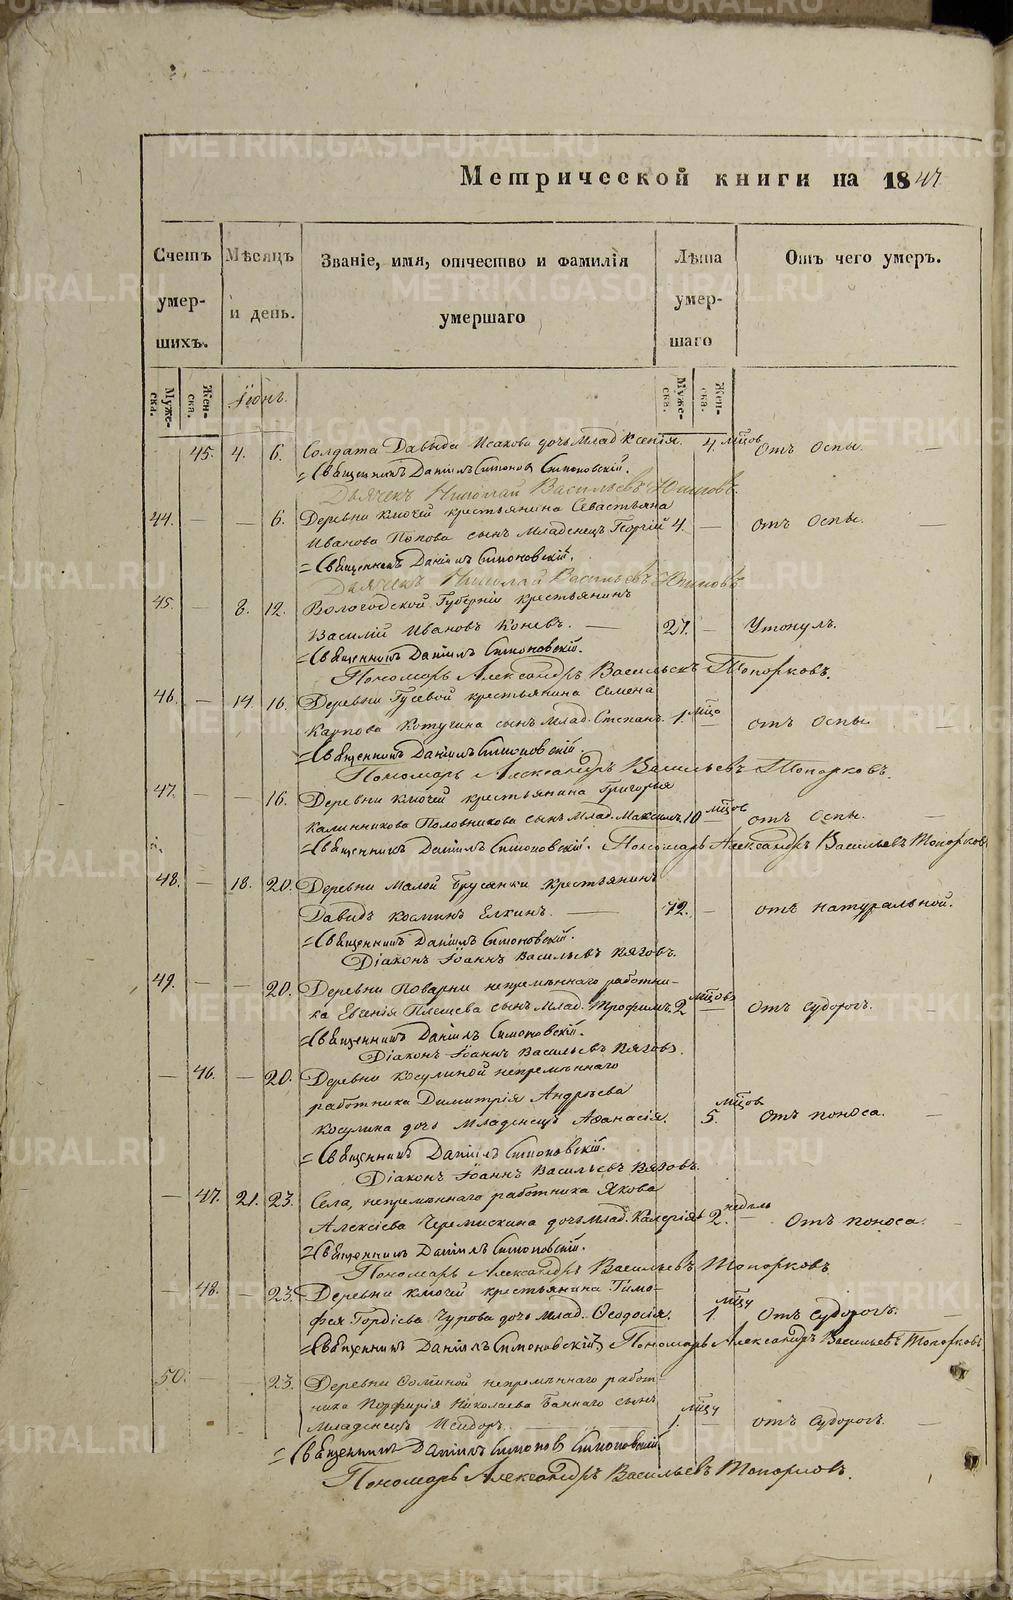 Метрической книги на 1847
Счетъ умер-шихъ.
Мѣсяцъ и день.
Званіе, имя, отчество и фамилія умершаго
Лѣта умер-шаго
Отъ чего умеръ.
Муже-ска.
Жен-ска.
Іюнь
Муже-ска.
Жен-ска.
45. 4. 6. Солдата Давыда Исакова дочь Млад. Ксенія. 4. мцов отъ оспы.
= Священникъ Даніилъ Симоновъ Симоновскій.
Дьячекъ Николай Васильевъ
44. — — 6. Деревни Ключей крестьянина Севастьяна
Иванова Попова сынъ Младенецъ Георгій 4. — отъ оспы.
= Священникъ Даніилъ Симоновскій.
Дьячекъ Николай Васильевъ
45. — 8. 12. Вологодской Губерніи крестьянинъ
Василій Ивановъ Коневъ. — 27. — Утонулъ.
= Священникъ Даніилъ Симоновскій.
Пономарь Александръ Васильевъ Топорковъ.
46. — 14. 16. Деревни Гусевой крестьянина Семена
Карпова Котугина сынъ Млад. Степанъ. 1. мца отъ оспы
= Священникъ Даніилъ Симоновскій.
Пономарь Александръ Васильевъ Топорковъ.
47. — — 16. Деревни Ключей крестьянина Григорья
Калинникова Половникова сынъ Млад. Максимъ. 10 мцов отъ оспы.
= Священникъ Даніилъ Симоновскій. Пономарь Александръ Васильевъ Топорковъ
48. — 18. 20. Деревни Малой Брусянки крестьянинъ
Давидъ Косминъ Елкинъ. — 72. — отъ натуральной.
= Священникъ Даніилъ Симоновскій.
Діаконъ Іоаннъ Васильевъ Вяговъ.
49. — — 20. Деревни Поварни непремѣннаго работни-
ка Евгенія Плешева сынъ Млад. Трофимъ. 2 мцов отъ судорогъ.
= Священникъ Даніилъ Симоновскій.
Діаконъ Іоаннъ Васильевъ Вяговъ.
— 46. — 20. Деревни Косулиной непремѣннаго
работника Димитрія Андреева
Косулина дочь Младенецъ Аѳанасія. 5. мцов отъ поноса.
= Священникъ Даніилъ Симоновскій.
Діаконъ Іоаннъ Васильевъ Вяговъ.
— 47. 21. 23. Села, непремѣннаго работника Якова
Алексіева Черемискина дочь Млад. Калерія 2. недѣль Отъ поноса.
= Священникъ Даніилъ Симоновскій.
Пономарь Александръ Васильевъ Топорковъ
— 48. — 23. Деревни Ключей крестьянина Тимо-
фея Гордіева Чурова дочь Млад. Ѳеодосія. 1. мцу Отъ судорогъ.
= Священникъ Даніилъ Симоновскій, Пономарь Александръ Васильевъ Топорковъ
50. — — 23. Деревни непремѣннаго работ-
ника Порфирія Николаева Баннаго сынъ
Младенецъ Исидоръ. 1. мцу отъ судорогъ.
= Священникъ Даніилъ Симоновъ Симоновскій
Пономарь Александръ Васильевъ Топорковъ.
METRIKI.GASO-URAL.RU